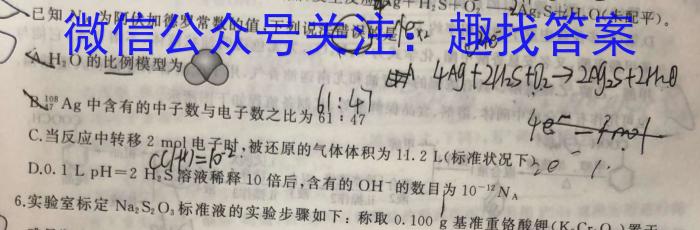 Ag+H₂S+O₂ Ag₂S+H₂O(未配平)。
已知 N 为阿伏加德罗常数的值,下列说法错误的是
微信公众号关注:趣找答案
A.H₂O 的比例模型为
4Ag+2H₂S+O₂→2Ag₂S+2H₂O
61:47
B.¹⁰⁸₄₇Ag 中含有的中子数与电子数之比为 61:47
C.当反应中转移 2 mol 电子时,被还原的气体体积为 11.2 L(标准状况下)
D.0.1 L pH=2 H₂S 溶液稀释 10 倍后,含有的 OH⁻ 的数目为 10⁻¹² N_A
6.实验室标定 Na₂S₂O₃ 标准液的实验步骤如下:称取 0.100 g 基准重铬酸钾(K₂Cr₂O₇)置于